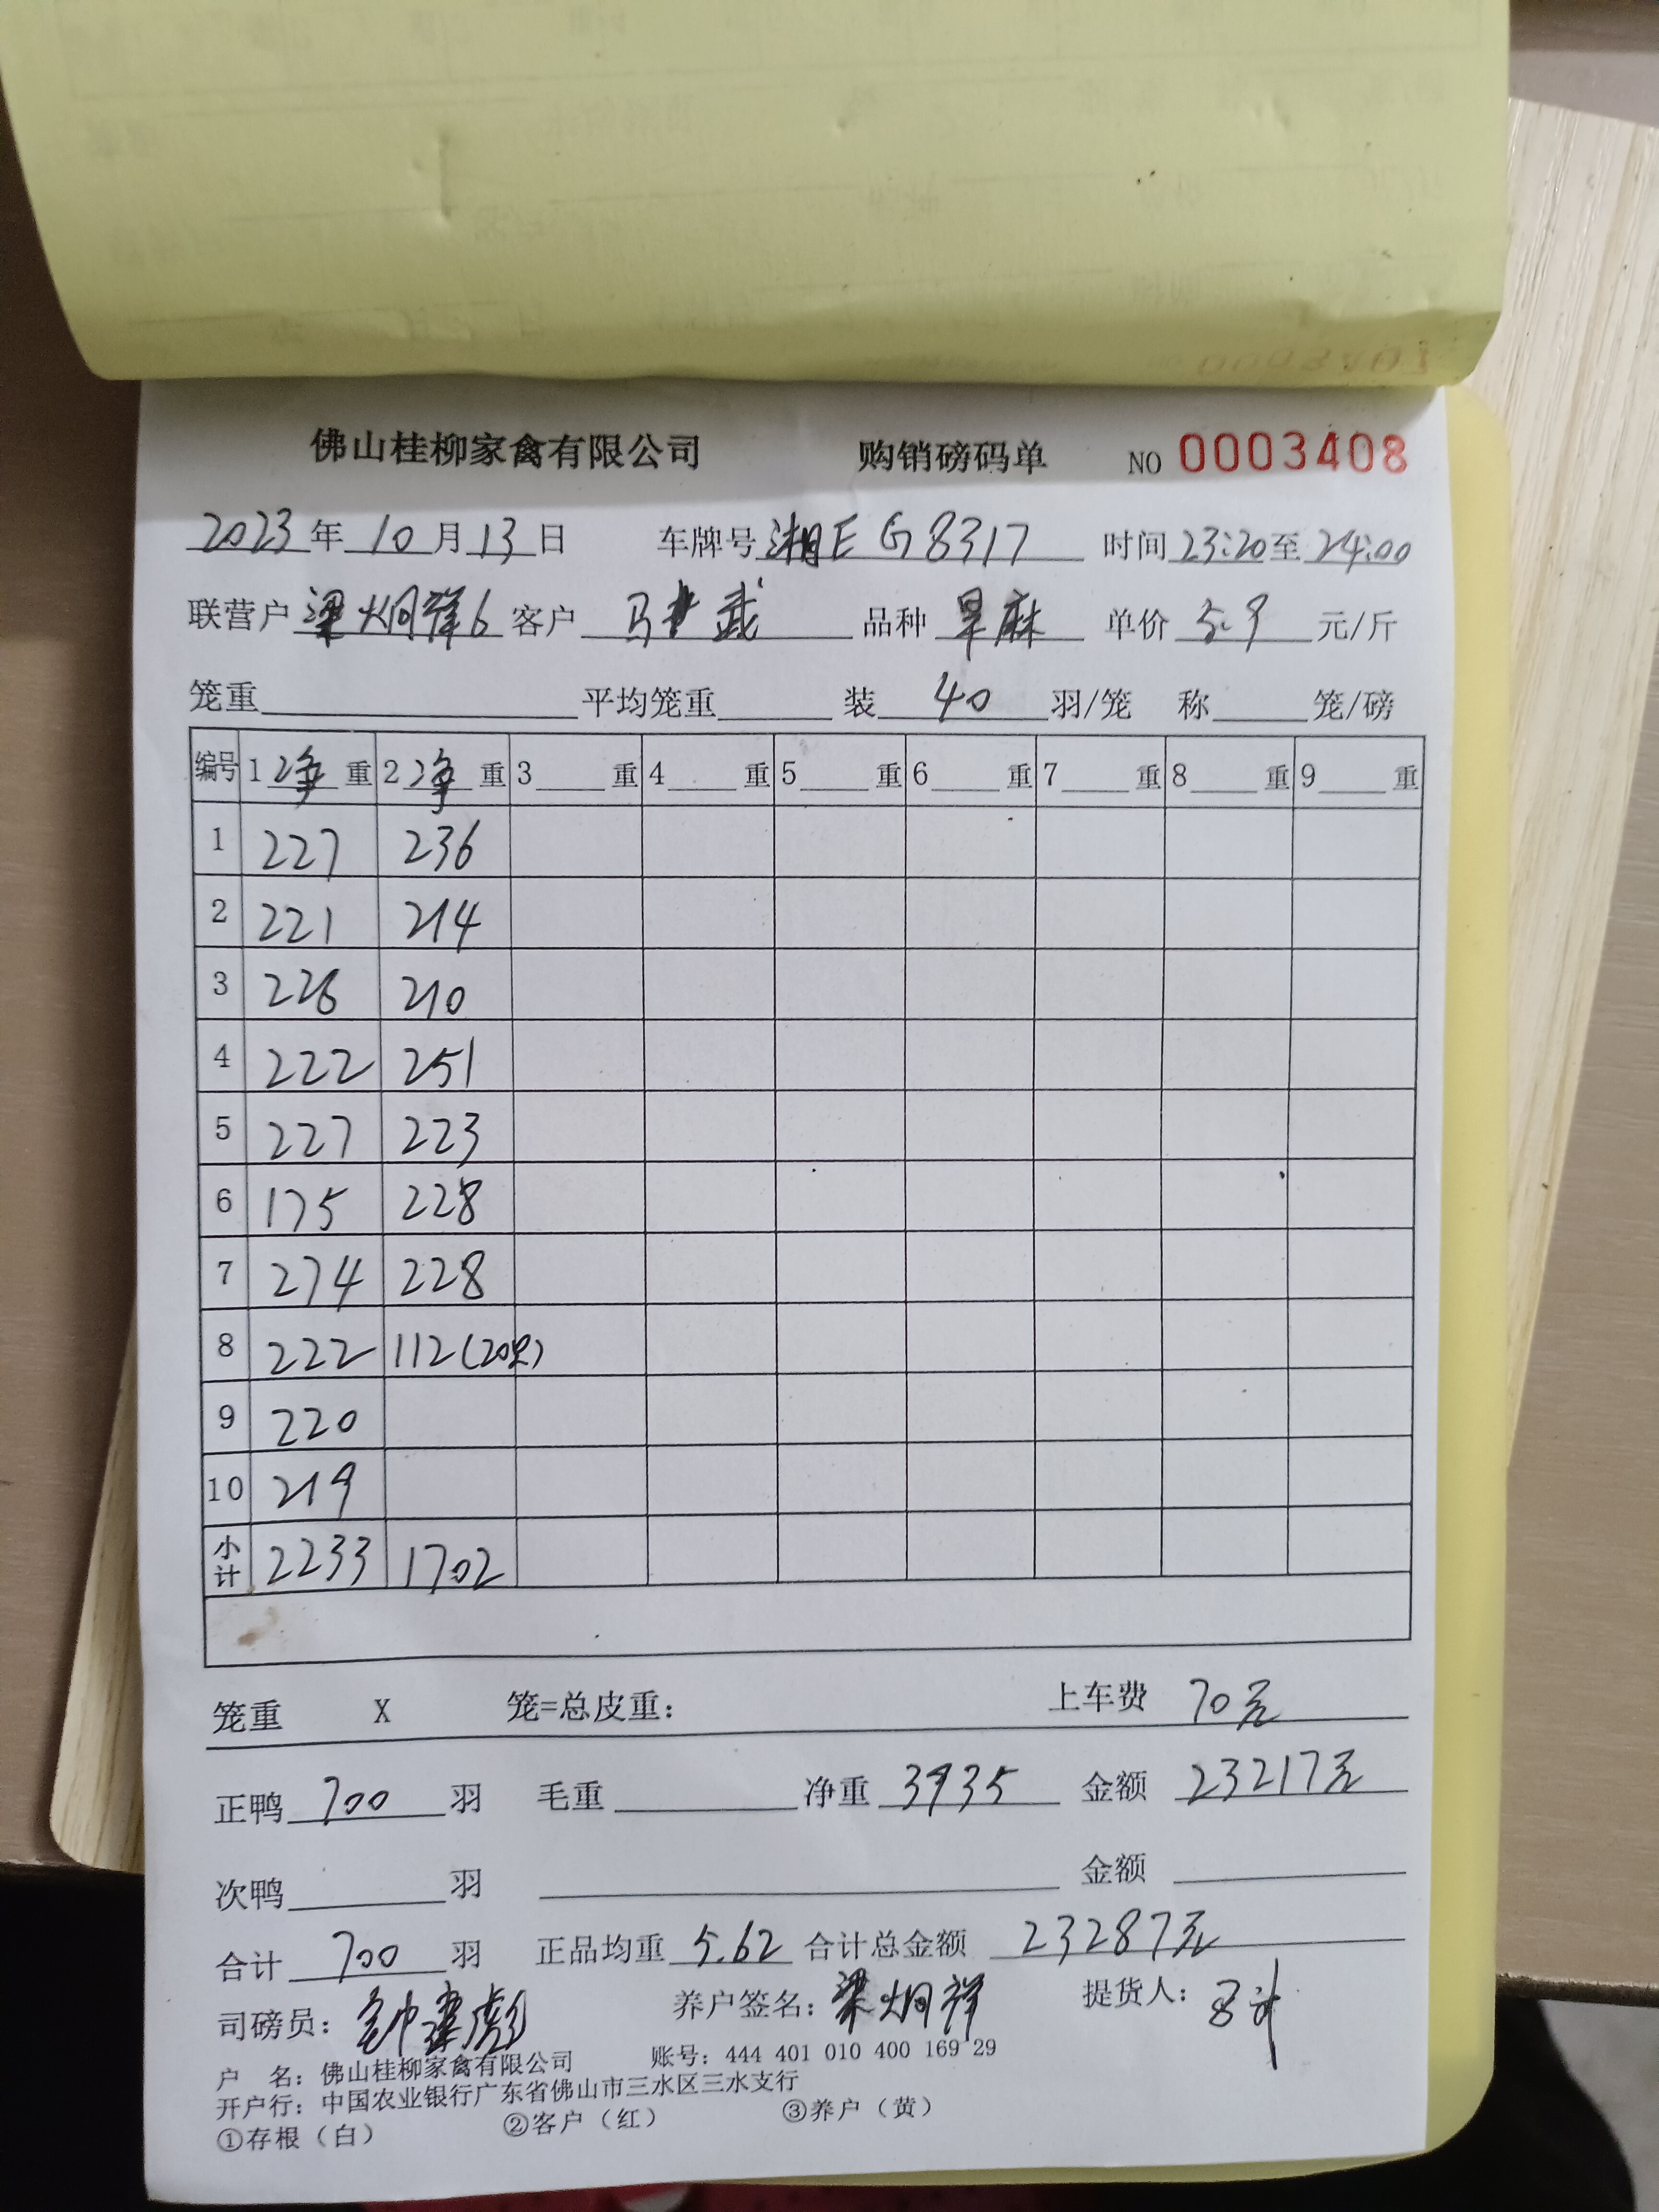 佛山桂柳家禽有限公司 购销磅码单 NO 0003408
2023年10月13日 车牌号湘E G8317 时间23:20至24:00
联营户梁炯祥6 客户 马 武 品种 旱麻 单价 5.9 元/斤
笼重 平均笼重 装 40 羽/笼 称 笼/磅
编号 1净重 2净重 3 重 4 重 5 重 6 重 7 重 8 重 9 重
1 227 236
2 221 214
3 226 210
4 222 251
5 227 223
6 175 228
7 274 228
8 222 112(20只)
9 220
10 219
小计 2233 1702
笼重 X 笼=总皮重: 上车费 70元
正鸭 700 羽 毛重 净重 3935 金额 23217元
次鸭 羽 金额
合计 700 羽 正品均重 5.62 合计总金额 23287元
司磅员: 钟建彪 养户签名: 梁炯祥 提货人:
户 名: 佛山桂柳家禽有限公司 账号: 444 401 010 400 169 29
开户行: 中国农业银行广东省佛山市三水区三水支行
①存根（白） ②客户（红） ③养户（黄）